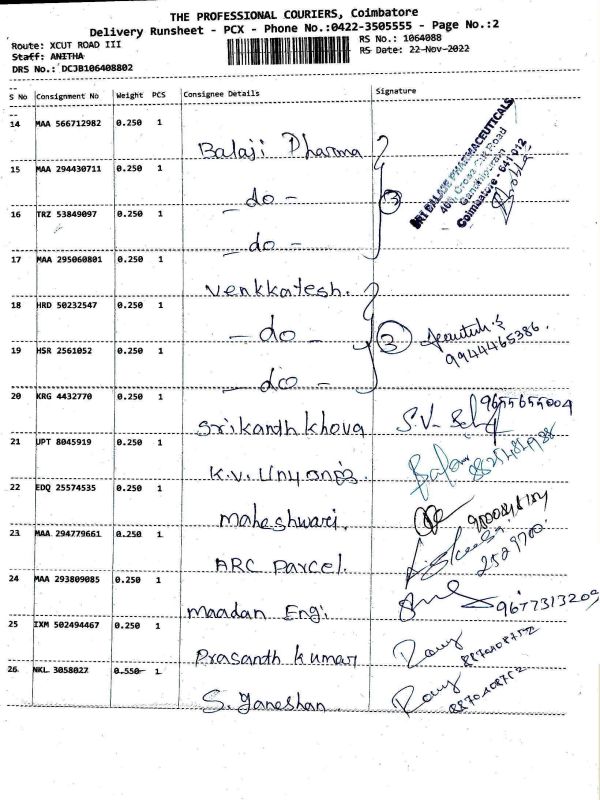 THE PROFESSIONAL COURIERS, Coimbatore
Delivery Runsheet - PCX - Phone No.:0422-3505555 - Page No.:2
Route: XCUT ROAD III
RS No.: 1064088
Staff: ANITHA
RS Date: 22-Nov-2022
DRS No.: DCJB106408802
S No Consignment No Weight PCS Consignee Details Signature
14 MAA 566712982 0.250 1
Balaji Pharma
15 MAA 294430711 0.250 1
- do -
16 TRZ 53849097 0.250 1
- do -
3
SRI BALAJI PHARMACEUTICALS
Cross Cut Road
Gandhipuram
Coimbatore - 641 012
17 MAA 295060801 0.250 1
Venkkatesh.
18 HRD 50232547 0.250 1
- do -
3
9944465386.
19 HSR 2561052 0.250 1
- do -
20 KRG 4432770 0.250 1
Srikanth Khova
9655655004
21 UPT 8045919 0.250 1
K.V.
22 EDQ 25574535 0.250 1
Maheshwari.
23 MAA 294779661 0.250 1
ARC Parcel.
2529700
24 MAA 293809085 0.250 1
Maadan Engi
9677313209
25 IXM 502494467 0.250 1
Prasanth Kumar
8870408752
26 NKL 3058027 0.550 1
S. Ganeshan
8870408752